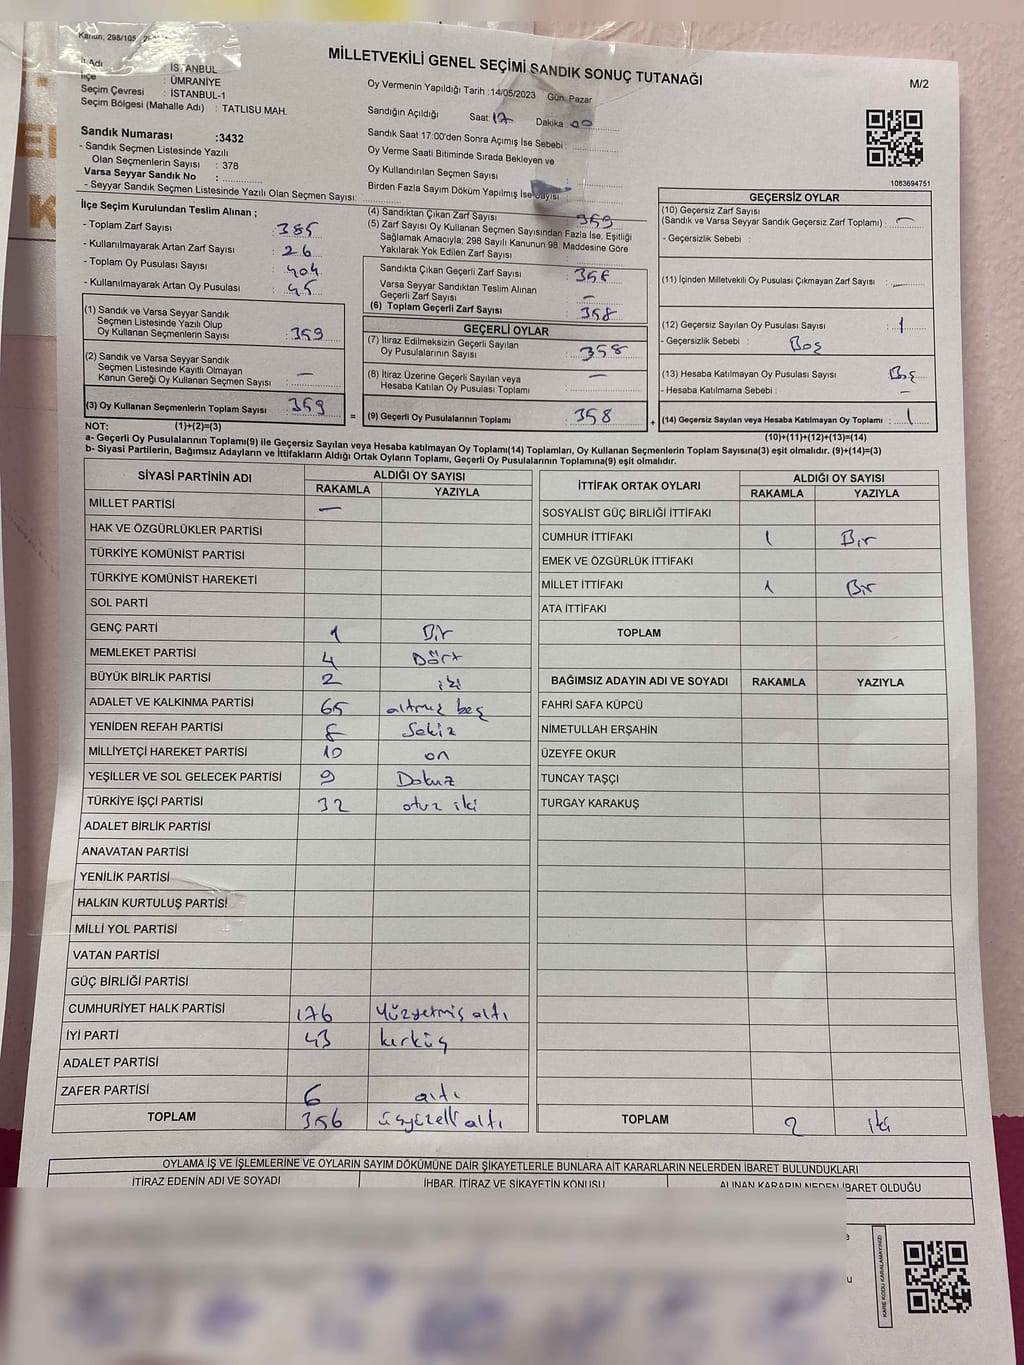 Kanun, 298/105
MİLLETVEKİLİ GENEL SEÇİMİ SANDIK SONUÇ TUTANAĞI
M/2
İl Adı : İSTANBUL
İlçe : ÜMRANİYE
Seçim Çevresi : İSTANBUL-1
Seçim Bölgesi (Mahalle Adı) : TATLISU MAH.
Oy Vermenin Yapıldığı Tarih :14/05/2023 Gün: Pazar
Sandığın Açıldığı Saat 17 Dakika 00
Sandık Numarası :3432
- Sandık Seçmen Listesinde Yazılı
Olan Seçmenlerin Sayısı : 378
Varsa Seyyar Sandık No :
- Seyyar Sandık Seçmen Listesinde Yazılı Olan Seçmen Sayısı:
Sandık Saat 17:00'den Sonra Açımış İse Sebebi :
Oy Verme Saati Bitiminde Sırada Bekleyen ve
Oy Kullandırılan Seçmen Sayısı :
Birden Fazla Sayım Döküm Yapılmış İse Sayısı :
1083694751
İlçe Seçim Kurulundan Teslim Alınan ;
- Toplam Zarf Sayısı : 385
- Kullanılmayarak Artan Zarf Sayısı : 26
- Toplam Oy Pusulası Sayısı : 404
- Kullanılmayarak Artan Oy Pusulası : 45
(1) Sandık ve Varsa Seyyar Sandık
Seçmen Listesinde Yazılı Olup
Oy Kullanan Seçmenlerin Sayısı : 359
(2) Sandık ve Varsa Seyyar Sandık
Seçmen Listesinde Kayıtlı Olmayan
Kanun Gereği Oy Kullanan Seçmen Sayısı : —
(3) Oy Kullanan Seçmenlerin Toplam Sayısı : 359
(4) Sandıktan Çıkan Zarf Sayısı : 359
(5) Zarf Sayısı Oy Kullanan Seçmen Sayısından Fazla İse, Eşitliği
Sağlamak Amacıyla; 298 Sayılı Kanunun 98. Maddesine Göre
Yakılarak Yok Edilen Zarf Sayısı :
Sandıkta Çıkan Geçerli Zarf Sayısı : 358
Varsa Seyyar Sandıktan Teslim Alınan
Geçerli Zarf Sayısı : —
(6) Toplam Geçerli Zarf Sayısı : 358
GEÇERLİ OYLAR
(7) İtiraz Edilmeksizin Geçerli Sayılan
Oy Pusulalarının Sayısı : 358
(8) İtiraz Üzerine Geçerli Sayılan veya
Hesaba Katılan Oy Pusulası Toplamı : —
= (9) Geçerli Oy Pusulalarının Toplamı : 358
GEÇERSİZ OYLAR
(10) Geçersiz Zarf Sayısı
(Sandık ve Varsa Seyyar Sandık Geçersiz Zarf Toplamı) : —
- Geçersizlik Sebebi :
(11) İçinden Milletvekili Oy Pusulası Çıkmayan Zarf Sayısı : —
(12) Geçersiz Sayılan Oy Pusulası Sayısı : 1
- Geçersizlik Sebebi : Boş
(13) Hesaba Katılmayan Oy Pusulası Sayısı : Boş
- Hesaba Katılmama Sebebi : —
+ (14) Geçersiz Sayılan veya Hesaba Katılmayan Oy Toplamı : 1
NOT: (1)+(2)=(3)
(10)+(11)+(12)+(13)=(14)
a- Geçerli Oy Pusulalarının Toplamı(9) ile Geçersiz Sayılan veya Hesaba katılmayan Oy Toplamı(14) Toplamları, Oy Kullanan Seçmenlerin Toplam Sayısına(3) eşit olmalıdır. (9)+(14)=(3)
b- Siyasi Partilerin, Bağımsız Adayların ve İttifakların Aldığı Ortak Oyların Toplamı, Geçerli Oy Pusulalarının Toplamına(9) eşit olmalıdır.
SİYASİ PARTİNİN ADI ALDIĞI OY SAYISI
RAKAMLA YAZIYLA
MİLLET PARTİSİ —
HAK VE ÖZGÜRLÜKLER PARTİSİ
TÜRKİYE KOMÜNİST PARTİSİ
TÜRKİYE KOMÜNİST HAREKETİ
SOL PARTİ
GENÇ PARTİ 1 Bir
MEMLEKET PARTİSİ 4 Dört
BÜYÜK BİRLİK PARTİSİ 2 iki
ADALET VE KALKINMA PARTİSİ 65 altmış beş
YENİDEN REFAH PARTİSİ 8 Sekiz
MİLLİYETÇİ HAREKET PARTİSİ 10 on
YEŞİLLER VE SOL GELECEK PARTİSİ 9 Dokuz
TÜRKİYE İŞÇİ PARTİSİ 32 otuz iki
ADALET BİRLİK PARTİSİ
ANAVATAN PARTİSİ
YENİLİK PARTİSİ
HALKIN KURTULUŞ PARTİSİ
MİLLİ YOL PARTİSİ
VATAN PARTİSİ
GÜÇ BİRLİĞİ PARTİSİ
CUMHURİYET HALK PARTİSİ 176 Yüzyetmiş altı
İYİ PARTİ 43 kırküç
ADALET PARTİSİ
ZAFER PARTİSİ 6 altı
TOPLAM 356 üçyüzelli altı
İTTİFAK ORTAK OYLARI ALDIĞI OY SAYISI
RAKAMLA YAZIYLA
SOSYALİST GÜÇ BİRLİĞİ İTTİFAKI
CUMHUR İTTİFAKI 1 Bir
EMEK VE ÖZGÜRLÜK İTTİFAKI
MİLLET İTTİFAKI 1 Bir
ATA İTTİFAKI
TOPLAM
BAĞIMSIZ ADAYIN ADI VE SOYADI RAKAMLA YAZIYLA
FAHRİ SAFA KÜPCÜ
NİMETULLAH ERŞAHİN
ÜZEYFE OKUR
TUNCAY TAŞÇI
TURGAY KARAKUŞ
TOPLAM 2 iki
OYLAMA İŞ VE İŞLEMLERİNE VE OYLARIN SAYIM DÖKÜMÜNE DAİR ŞİKAYETLERLE BUNLARA AİT KARARLARIN NELERDEN İBARET BULUNDUKLARI
İTİRAZ EDENİN ADI VE SOYADI İHBAR, İTİRAZ VE ŞİKAYETİN KONUSU ALINAN KARARIN NEDEN İBARET OLDUĞU
KARE KODU KARALAMAYINIZ!